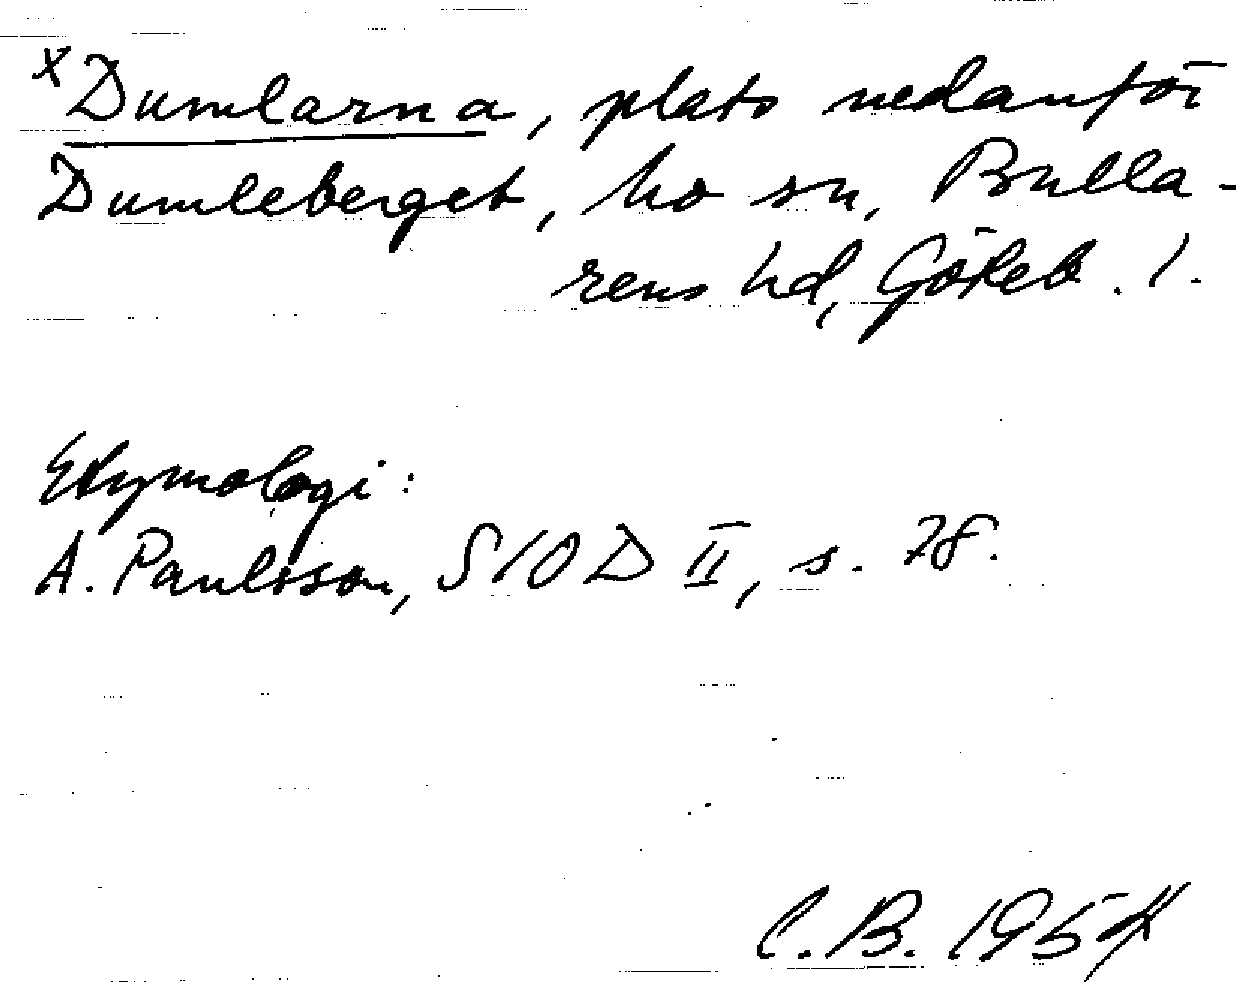 x Dumlarna, plats nedanför
Dumleberget, ho sn, Bulla-
rens hd, Göteb. l.
Etymologi:
A. Paulsson, SIOD II, s. 78.
C.B. 1954